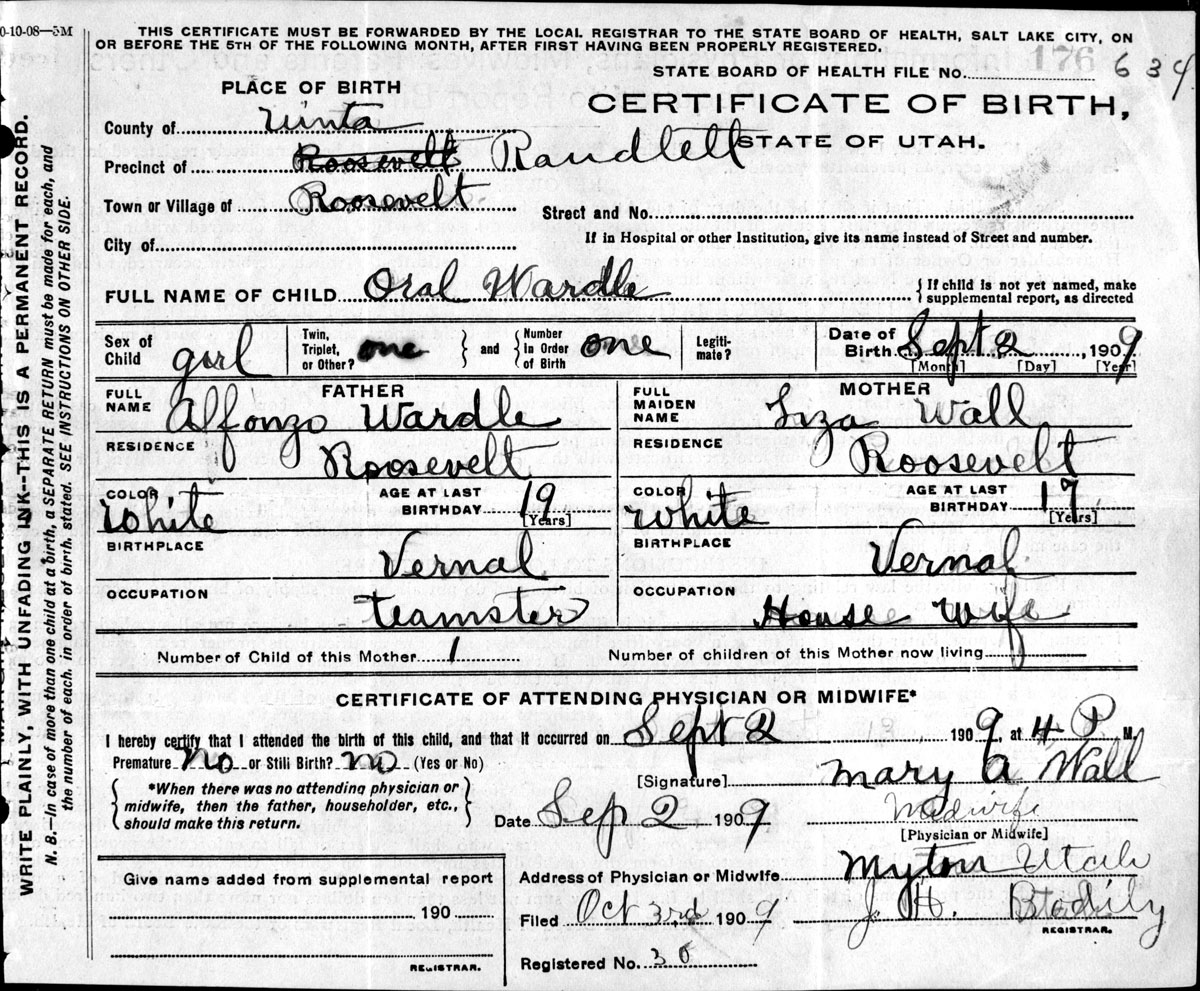 0-10-08—5M
THIS CERTIFICATE MUST BE FORWARDED BY THE LOCAL REGISTRAR TO THE STATE BOARD OF HEALTH, SALT LAKE CITY, ON
OR BEFORE THE 5TH OF THE FOLLOWING MONTH, AFTER FIRST HAVING BEEN PROPERLY REGISTERED.
STATE BOARD OF HEALTH FILE NO. 176 634
PLACE OF BIRTH
CERTIFICATE OF BIRTH,
STATE OF UTAH.
County of Uinta
Precinct of Roosevelt Randlett
Town or Village of Roosevelt
Street and No.
City of
If in Hospital or other Institution, give its name instead of Street and number.
FULL NAME OF CHILD Oral Wardle
{ If child is not yet named, make
supplemental report, as directed
Sex of Child girl
Twin, Triplet, or Other? one } and { Number In Order of Birth one
Legiti-mate?
Date of Birth Sept 2, 1909
[Month] [Day] [Year]
FATHER
FULL NAME Alfonzo Wardle
MOTHER
FULL MAIDEN NAME Liza Wall
RESIDENCE Roosevelt
RESIDENCE Roosevelt
COLOR White
AGE AT LAST BIRTHDAY 19 [Years]
COLOR White
AGE AT LAST BIRTHDAY 17 [Years]
BIRTHPLACE Vernal
BIRTHPLACE Vernal
OCCUPATION teamster
OCCUPATION House wife
Number of Child of this Mother 1
Number of children of this Mother now living 1
CERTIFICATE OF ATTENDING PHYSICIAN OR MIDWIFE*
I hereby certify that I attended the birth of this child, and that it occurred on Sept 2, 1909, at 4 P M.
Premature No or Still Birth? no (Yes or No)
[Signature] Mary A Wall
{ *When there was no attending physician or
midwife, then the father, householder, etc.,
should make this return. }
Date Sep 2 1909
Midwife
[Physician or Midwife]
Give name added from supplemental report
190
REGISTRAR.
Address of Physician or Midwife Myton Utah
Filed Oct 3rd 1909
J. H. Bodily
REGISTRAR.
Registered No. 30
WRITE PLAINLY, WITH UNFADING INK--THIS IS A PERMANENT RECORD.
N. B.—In case of more than one child at a birth, a SEPARATE RETURN must be made for each, and
the number of each, in order of birth, stated. SEE INSTRUCTIONS ON OTHER SIDE.